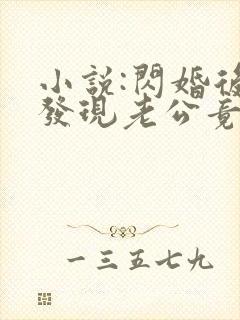 小說:閃婚後
發現老公竟
一三五七九